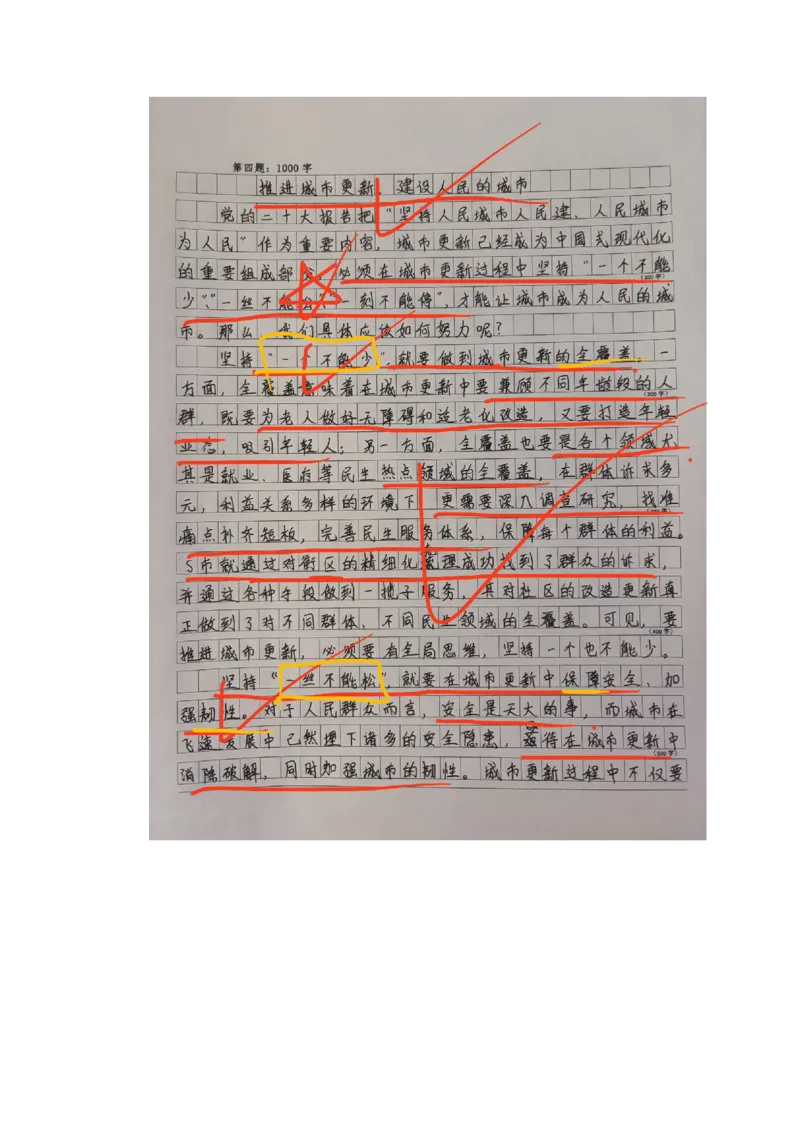 第四题：1000字
推进城市更新，建设人民的城市
党的二十大报告把“坚持人民城市人民建、人民城市
为人民”作为重要内容，城市更新已经成为中国式现代化
的重要组成部分，必须在城市更新过程中坚持“一个不能
(100字)
少”、“一丝不能松”、“一刻不能停”，才能让城市成为人民的城
市。那么，我们具体应该如何努力呢？
坚持“一个不能少”，就要做到城市更新的全覆盖。一
方面，全覆盖意味着在城市更新中要兼顾不同年龄段的人
(200字)
群，既要为老人做好无障碍和适老化改造，又要打造年轻
业态，吸引年轻人；另一方面，全覆盖也要是各个领域尤
其是就业、医疗等民生热点领域的全覆盖，在群体诉求多
元，利益关系多样的环境下，更需要深入调查研究，找准
(300字)
痛点补齐短板，完善民生服务体系，保障每个群体的利益。
S市就通过对街区的精细化管理成功找到了群众的诉求，
并通过各种手段做到一揽子服务，其对社区的改造更新真
正做到了对不同群体、不同民生领域的全覆盖。可见，要
(400字)
推进城市更新，必须要有全局思维，坚持一个也不能少。
坚持“一丝不能松”就要在城市更新中保障安全、加
强韧性。对于人民群众而言，安全是天大的事，而城市在
飞速发展中已然埋下诸多的安全隐患，亟待在城市更新中
(500字)
消除破解，同时加强城市的韧性。城市更新过程中不仅要